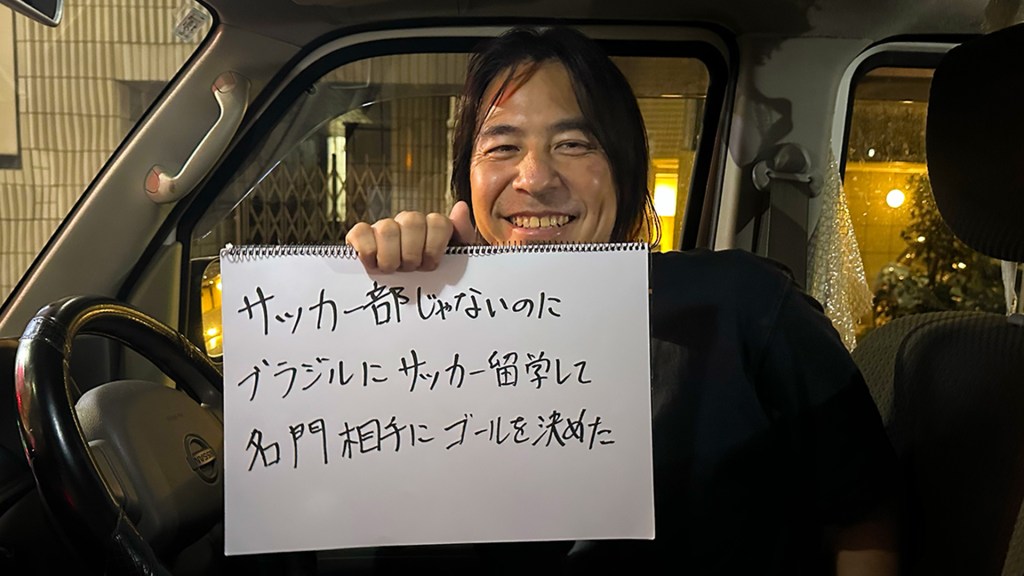 サッカー部じゃないのに
ブラジルにサッカー留学して
名門相手にゴールを決めた